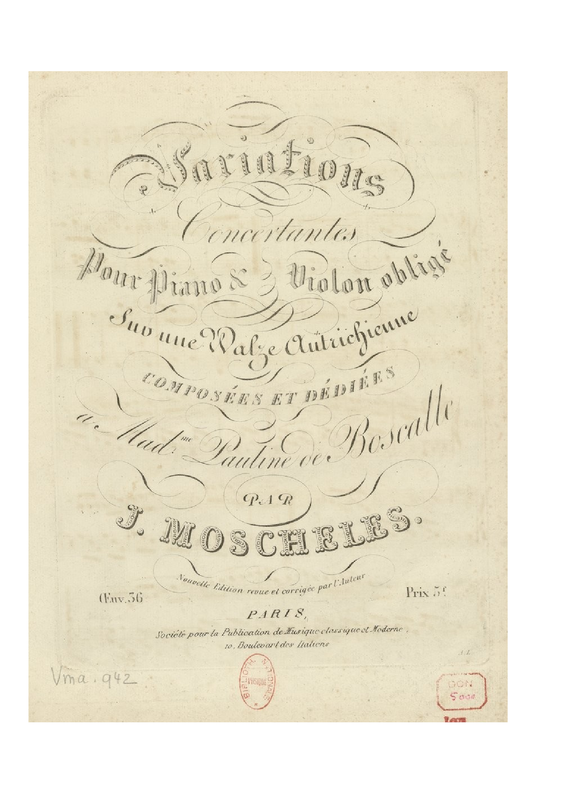 Variations
Concertantes
Pour Piano & Violon obligé
Sur une Walze Autrichienne
COMPOSÉES ET DÉDIÉES
a Mad.me Pauline de Boscalle
PAR
J. MOSCHELES.
Nouvelle Edition revue et corrigée par l'Auteur
Œuv. 36
Prix 5f
PARIS,
Société pour la Publication de Musique classique et Moderne.
10. Boulevart des Italiens
Vma. 942
DON